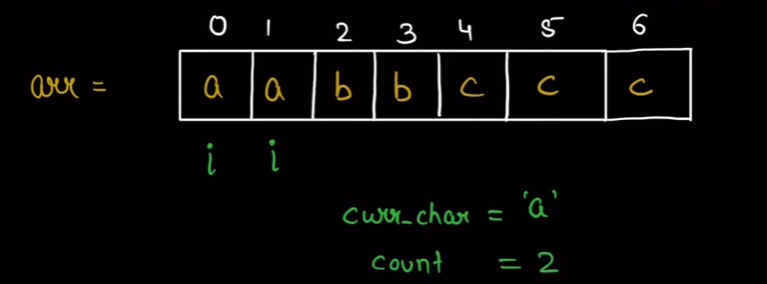 0 1 2 3 4 5 6
arr = a a b b c c c
i i
curr_char = 'a'
count = 2